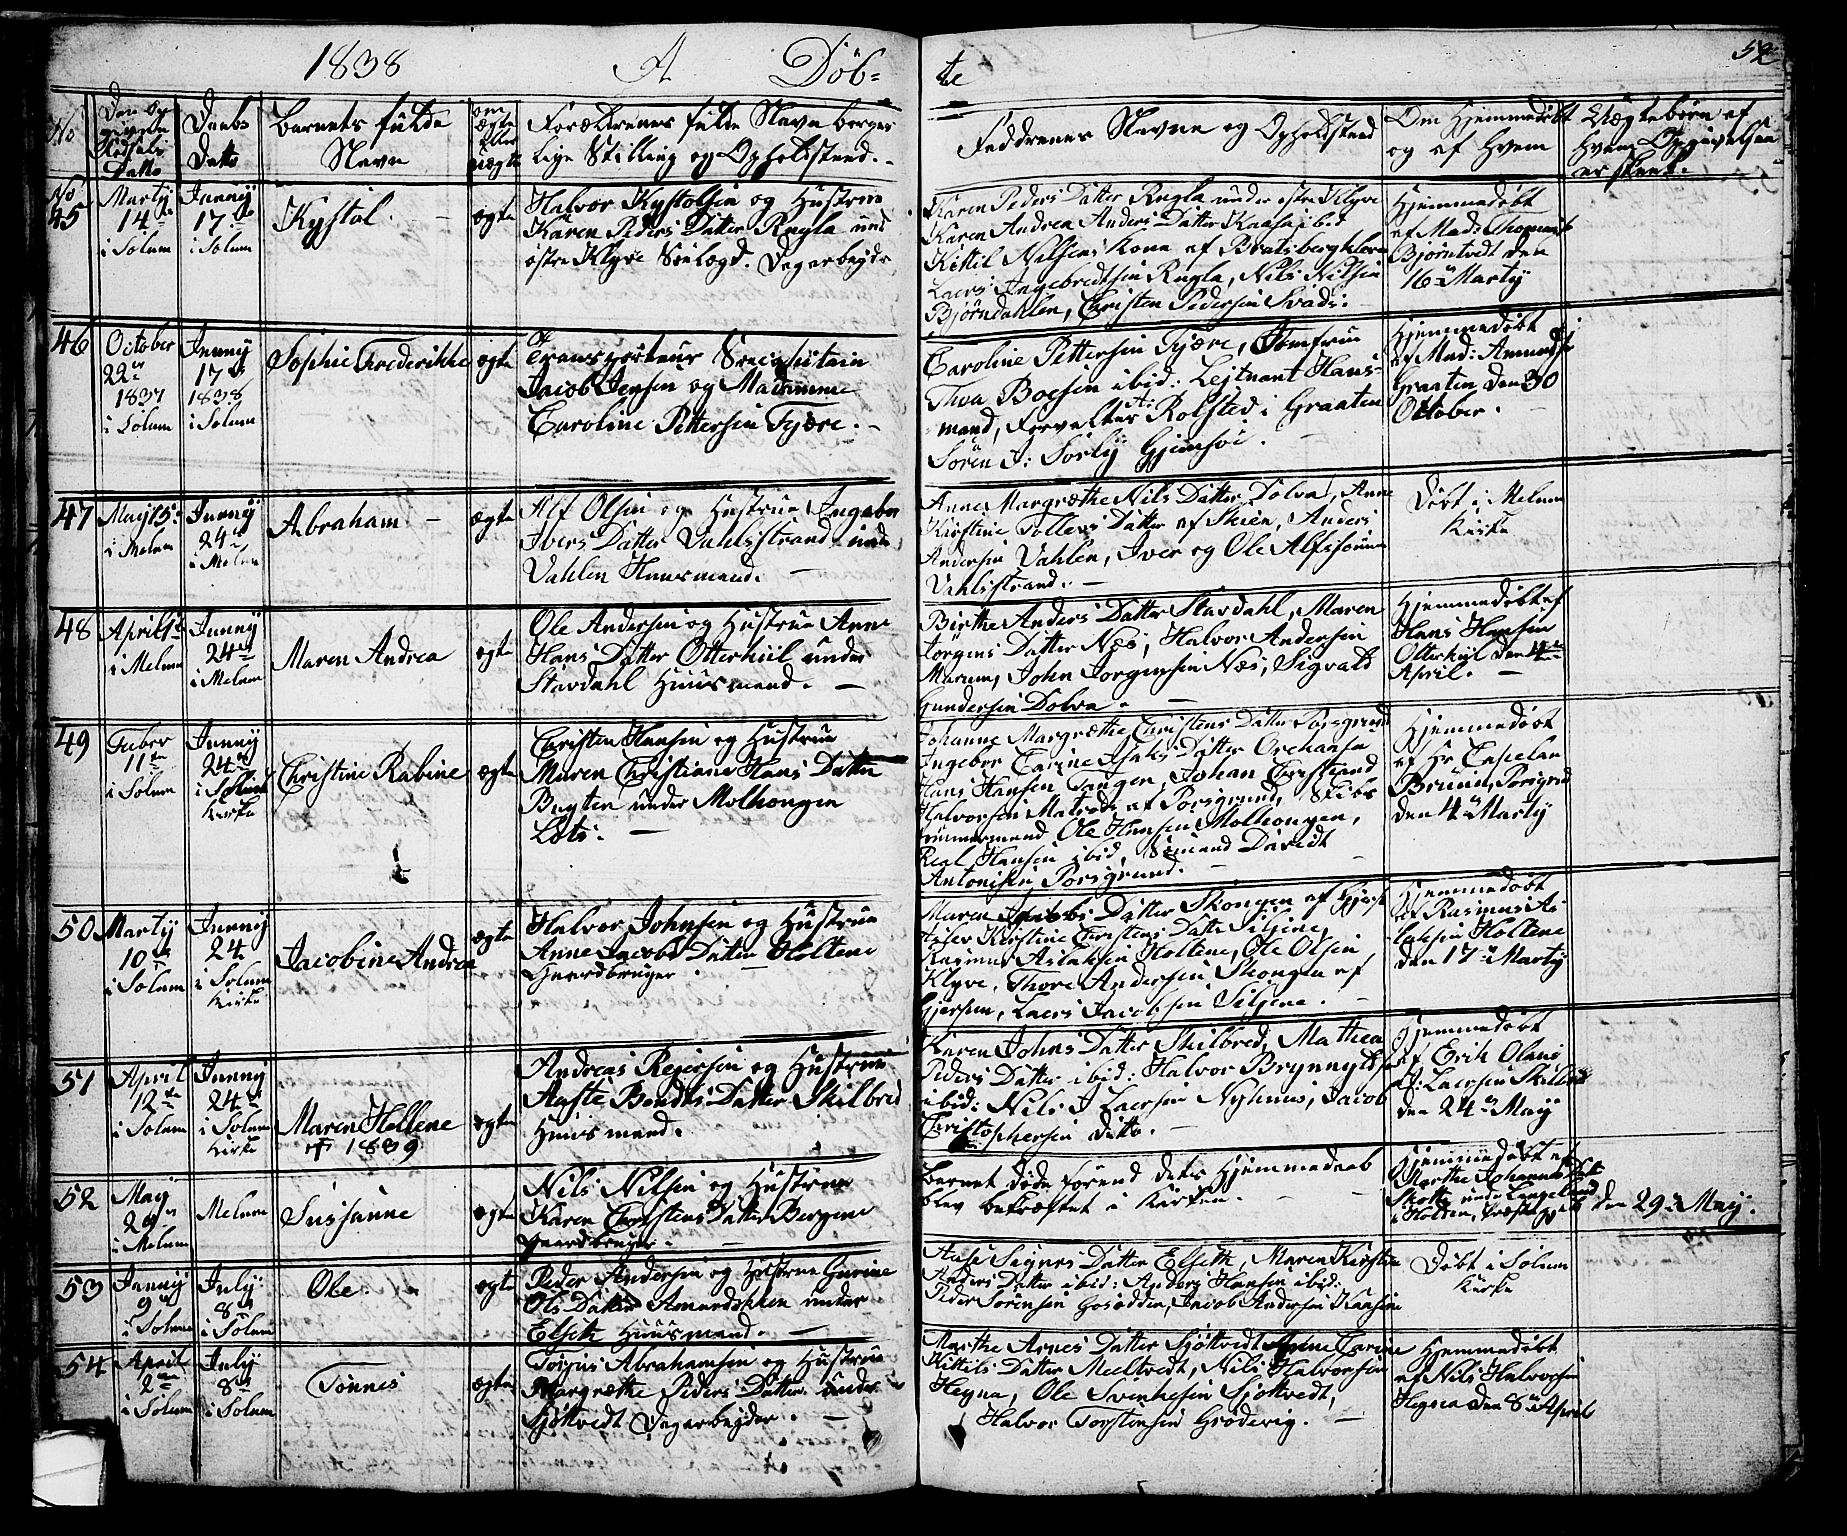 1838 A Döb= te 52
No
Den op
givne
Fødsels
Datto
Daabs
Datto
Barnets fulde
Navn
om
ægte
eller
uægte
Forældrenes fulde Navn borger
lige Stilling og Opholdsted.
Faddrenes Navne og Opholdsted
Om Hjemmedöbt
og af Hvem
Uægtebörn af
Hvem Opgivelsen
er skeet.
No
45
Marty
14de
i Solum
Junny
17de
i Solum
Kystol.
ægte
Halvor Kystolsen og Hustrue
Karen Peders Datter Rugla und
östre Klyve Söelægd. Dagarbejdr
Karen Peders Datter Rugla under östre Klyve
Karen Andrea Anders Datter Kaasa ibd
Kittil Nilsens Kone af Bratsbergkleven
Laers Ingebredtsen Rugla, Nils Nilsen
Bjørndahlen, Christen Pedersen Svads.
Hjemmedöbt
af Mads Thomæs
Bjørntvedt den
16de Marty
46
October
22de
1837
i Solum
Junny
17de
1838
i Solum
Sophie Frederikke
ægte
Transporteur Seecapitain
Jacob Jensen og Madamme
Caroline Pettersen Fjære.
Caroline Pettersen Fjære, Jomfrue
Thva Boesen ibid: Lejtnant Hans-
mand, Forvalter A: Rolsted i Graaten
Sören J: Sörly Gjemsöe.
Hjemmedöbt
af Mad: Amundsen
Graaten den 30
October.
47
May 15de
i Melum
Junny
24de
i Melum
Abraham
ægte
Alf Olsen og Hustrue Ingebor
Ivers Datter Vahlsstrand unde
Vahlen Huusmand.
Anne Margrethe Nils Datter Dolva, Anne
Kirstine Tollevs Datter af Skien, Anders
Andersen Vahlen, Iver og Ole Alfssönner
Vahlsstrand.
Döbt i Melum
Kirke
48
April 1de
i Melum
Junny
24de
i Melum
Maren Andrea
ægte
Ole Andersen og Hustrue Anne
Hans Datter Otterhiil under
Stavdahl Huusmand.
Birthe Anders Datter Stavdahl, Maren
Jörgens Datter Næs, Halvor Andersen
Marum, John Jorgensen Næs, Sigvald
Gundersen Dolva.
Hjemmedöbt af
Hans Hansen
Otterhiil den 4de
April.
49
Faber
11te
i Solum
Junny
24de
i Solum
Kirke
Christine Rabine
ægte
Christen Hansen og Hustrue
Maren Christiane Hans Datter
Bugten under Molhougen
Lots.
Johanne Margrethe Christens Datter Porsgrund
Ingebor Carine Isaks Datter Orehaasa
Hans Hansen Tangen, Johan Christiand
Halvorsen Matros af Porsgrund, Skibs
tømmermand Ole Hansen Molhougen,
Real Hansen ibid, Sömand Davidt
Antonisen Porsgrund.
Hjemmedöbt
af Hr Capelan
Bruun, Porsgrd
den 4de Marty
50
Marty
10de
i Solum
Junny
24
i Solum
Kirke
Jacobine Andrea
ægte
Halvor Johnsen og Hustrue
Anne Jacobs Datter Holtene
Gaardbruger.
Maren Jacobs Datter Skougen af Gjerp
Kirstine Christens Datter Siljene,
Rasmus Aslaksen Holtene, Ole Olsen
Klyve, Thore Andersen Skougen af
Gjerpen, Laers Jacobsen Siljene.
Hjemmedöbt
af Rasmus As
laksen Holtene
den 17de Marty
51
April
12te
i Solum
Junny
24de
i Solum
Kirke
Maren Hellene
† 1839
ægte
Andreas Rejersen og Hustrue
Aaste Bendts Datter Skilbred
Huusmand.
Karen Johns Datter Skilbred, Mathea
Peders Datter ibid: Halvor Brynnyldsen
ibid: Nils J Laersen Nyhuus, Jacob
Christophersen ditto.
Hjemmedöbt
af Erik Olaus
A: Laersen Skilbred
den 24de May
52
May
29de
i Melum
Melum
Sussanne
ægte
Nils Nilsen og Hustrue
Karen Christens Datter Bergene
Gaardbruger.
Barnet döde forend dets Hjemmedaab
blev bekræftet i Kirken.
Hjemmedöbt af
Marthe Johannes Datt
Skotte under Langeland
i Holden, Præstegjeld
den 29de May.
53
Junny
9de
i Solum
July
8de
i Solum
Ole
ægte
Peder Andersen og Hustrue Gurine
Ols Datter Amundsekken under
Elseth Huusmand.
Aase Signes Datter Elseth, Maren Kirstine
Anders Datter ibid: Anders Hansen ibid:
Peder Sörensen Gosodden, Jacob Andersen Kaasene
Döbt i Solum
Kirke
54
April
2den
i Solum
July
8de
i Solum
Tönnes
ægte
Torjus Abrahamsen og Hustrue
Margrethe Peders Datter under
Sjöttvedt Dagarbejder.
Marthe Arnes Datter Sjöttvedt Anne Carine
Kittils Datter Meeltvedt, Nils Halvorsen
Heyna, Ole Svenkesen Sjöttvedt,
Halvor Torstensen Gröderig.
Hjemmedöbt
af Nils Halvorsen
Heyna den 8de April